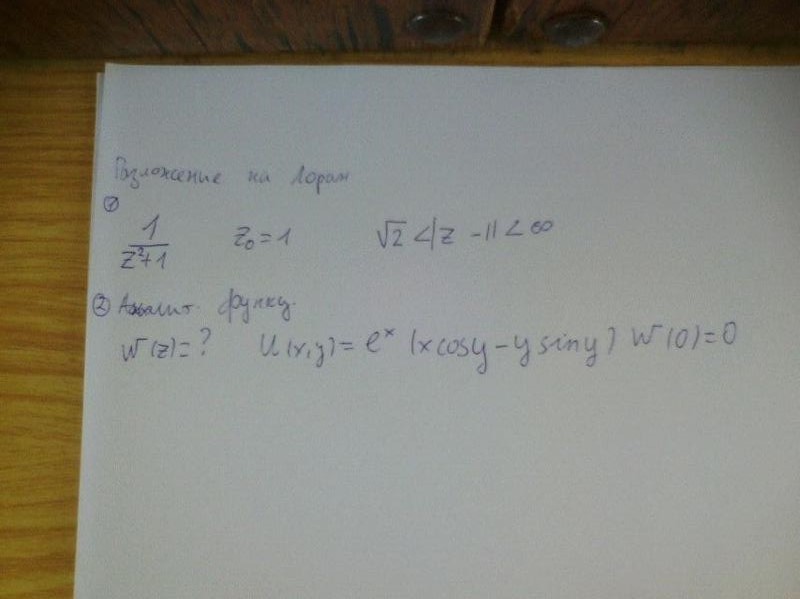 Разложение на Лоран
①
1/(z²+1) z₀=1 √2 <|z-1|< ∞
② Аналит. функц.
W(z)=? U(x,y)= eˣ (x cosy - y siny) W(0)=0